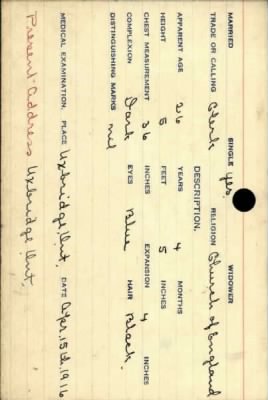 MARRIED SINGLE yes. WIDOWER
TRADE OR CALLING Clerk RELIGION Church of England
DESCRIPTION.
APPARENT AGE 26 YEARS 4 MONTHS
HEIGHT 5 FEET 5 INCHES
CHEST MEASUREMENT 36 INCHES EXPANSION 4 INCHES
COMPLEXION Dark EYES Blue HAIR Black.
DISTINGUISHING MARKS nil
MEDICAL EXAMINATION. PLACE Uxbridge, Ont DATE Apr. 15th, 1916
Present address Uxbridge Ont,